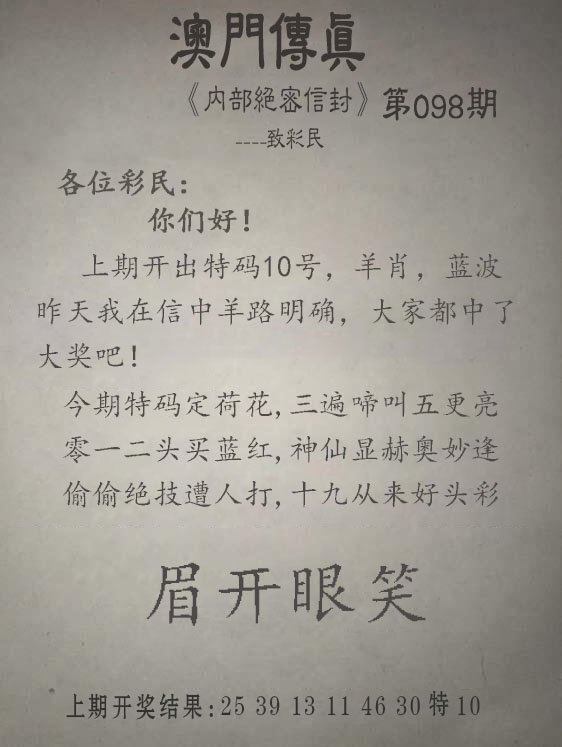 澳門傳眞
《内部絕密信封》第098期
----致彩民
各位彩民：
你们好！
上期开出特码10号，羊肖，蓝波
昨天我在信中羊路明确，大家都中了
大奖吧！
今期特码定荷花,三遍啼叫五更亮
零一二头买蓝红,神仙显赫奥妙逢
偷偷绝技遭人打,十九从来好头彩
眉开眼笑
上期开奖结果:25 39 13 11 46 30 特 10